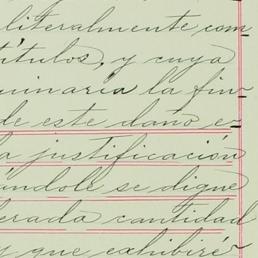 literalmente com
títulos, y cuya
quinaria la fin-
de este daño e-
a justificación
ándole se digne
erada cantidad
y que exhibiré